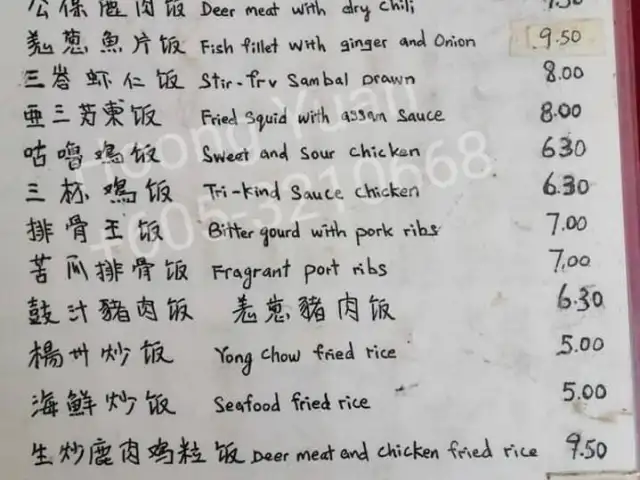 公保鹿肉饭 Deer meat with dry chili 9.50
羌葱魚片饭 Fish fillet with ginger and Onion 9.50
三峇虾仁饭 Stir-fry Sambal prawn 8.00
亜三苏東饭 Fried squid with assam sauce 8.00
咕噜鸡饭 Sweet and sour chicken 630
三杯鸡饭 Tri-kind Sauce chicken 6.30
排骨王饭 Bitter gourd with pork ribs 7.00
苦瓜排骨饭 Fragrant port ribs 7.00
鼓汁豬肉饭 羌葱豬肉饭 6.30
楊州炒饭 Yong Chow fried rice 5.00
海鮮炒饭 Seafood fried rice 5.00
生炒鹿肉鸡粒饭 Deer meat and chicken fried rice 9.50
Hoong Yuan
+605-3210668